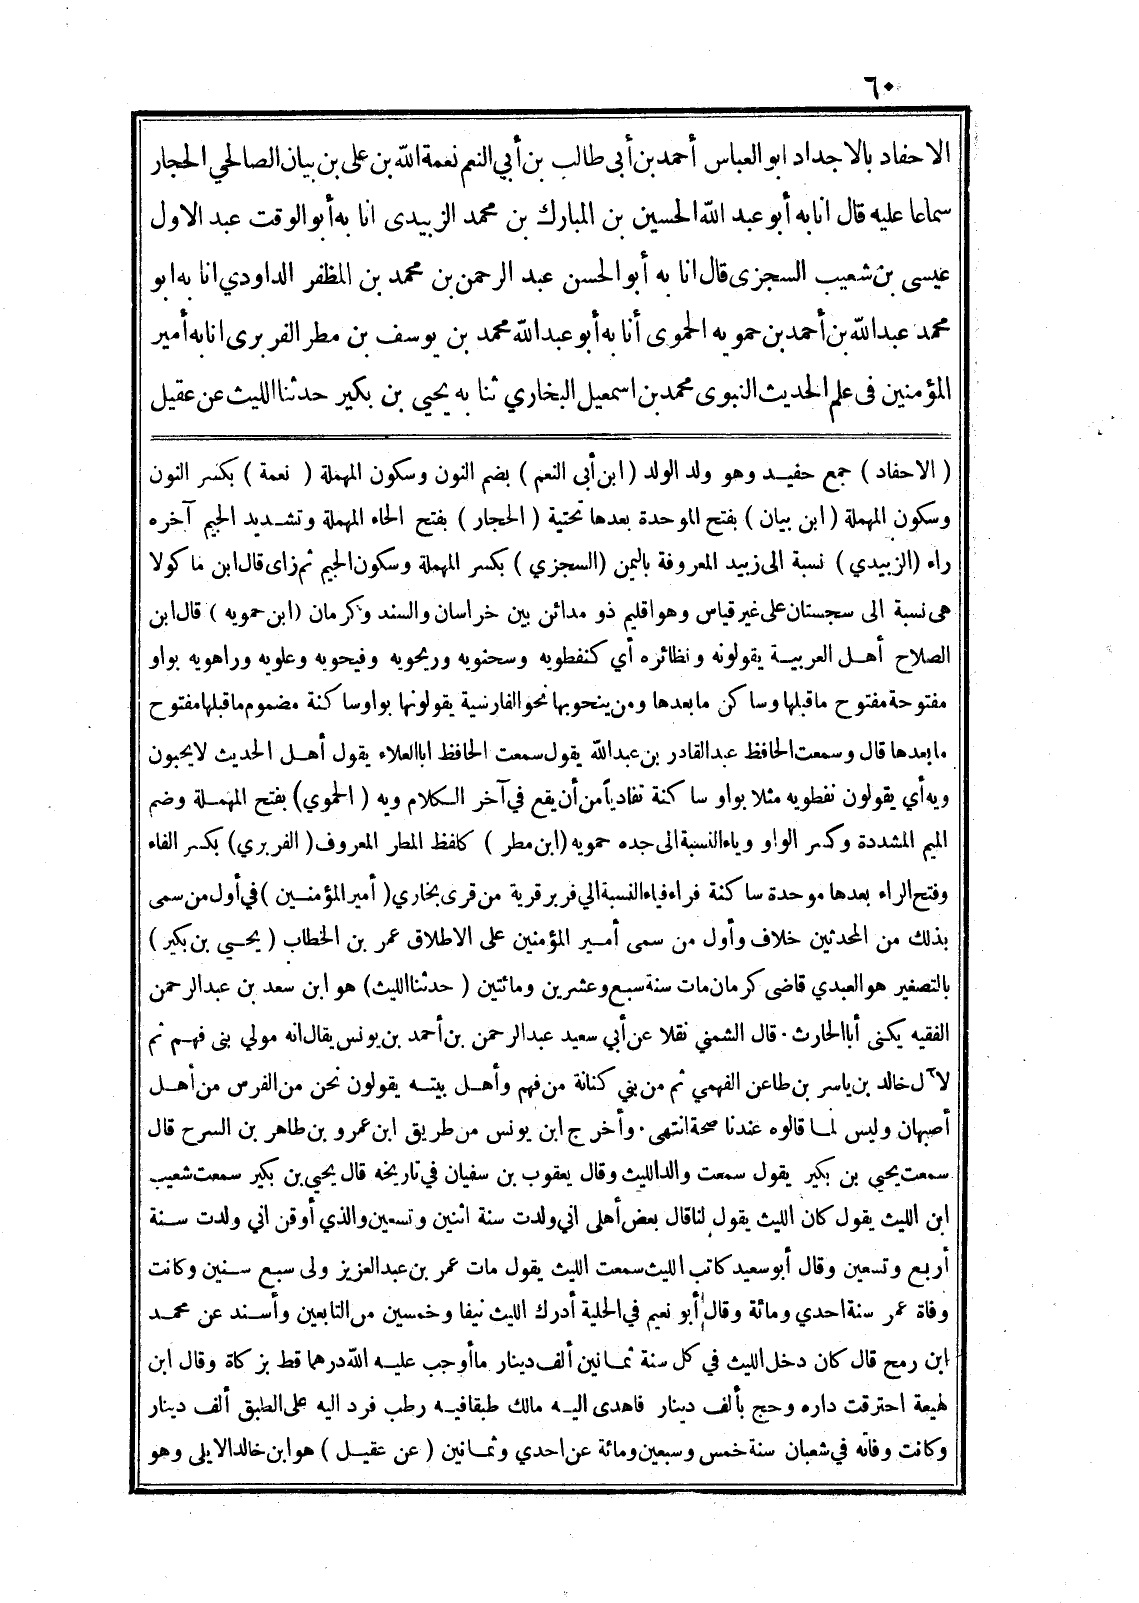 ٦٠
الاحفاد بالاجداد ابو العباس أحمد بن أبى طالب بن أبي النعم نعمة الله بن على بن بيان الصالحي الحجار
سماعا عليه قال انا به أبو عبد الله الحسين بن المبارك بن محمد الزبيدى انا به أبو الوقت عبد الاول
عيسى بن شعيب السجزى قال انا به أبو الحسن عبد الرحمن بن محمد بن المظفر الداودي انا به ابو
محمد عبدالله بن أحمد بن حمويه الحموى أنا به أبو عبدالله محمد بن يوسف بن مطر الفربرى انا به أمير
المؤمنين فى علم الحديث النبوى محمد بن اسمعيل البخاري ثنا به يحيي بن بكير حدثنا الليث عن عقيل
( الاحفاد ) جمع حفيد وهو ولد الولد ( ابن أبى النعم ) بضم النون وسكون المهملة ( نعمة ) بكسر النون
وسكون المهملة ( ابن بيان ) بفتح الموحدة بعدها تحتية ( الحجار ) بفتح الحاء المهملة وتشديد الجيم آخره
راء (الزبيدي ) نسبة الى زبيد المعروفة باليمن (السجزي ) بكسر المهملة وسكون الجيم ثم زاى قال ابن ماكولا
هى نسبة الى سجستان على غير قياس وهو اقليم ذو مدائن بين خراسان والسند وكرمان (ابن حمويه ) قال ابن
الصلاح أهل العربية يقولونه ونظائره أي كنفطويه وسحنويه وريحويه وفيحويه وعلويه وراهويه بواو
مفتوحة مفتوح ماقبلها وساكن مابعدها ومن ينحوبها نحو الفارسية يقولونها بواو ساكنة مضموم ماقبلها مفتوح
مابعدها قال وسمعت الحافظ عبد القادر بن عبد الله يقول سمعت الحافظ ابا العلاء يقول أهل الحديث لا يحبون
ويه أي يقولون نفطويه مثلا بواو ساكنة تفاديا من أن يقع في آخر الكلام ويه ( الحموي) بفتح المهملة وضم
الميم المشددة وكسر الواو وياء النسبة الى جده حمويه (ابن مطر ) كلفظ المطر المعروف ( الفربري) بكسر الفاء
وفتح الراء بعدها موحدة ساكنة فراء فياء النسبة الي فربر قرية من قرى بخاري ( أمير المؤمنين ) في أول من سمى
بذلك من المحدثين خلاف وأول من سمى أمير المؤمنين على الاطلاق عمر بن الخطاب ( يحيى بن بكير )
بالتصغير هو العبدي قاضى كرمان مات سنة سبع وعشرين ومائتين ( حدثنا الليث) هو ابن سعد بن عبد الرحمن
الفقيه يكنى أبا الحارث . قال الشمني نقلا عن أبي سعيد عبد الرحمن بن أحمد بن يونس يقال انه مولي بنى فهم ثم
لآل خالد بن ياسر بن طاعن الفهمي ثم من بني كنانة من فهم وأهل بيته يقولون نحن من الفرس من أهل
أصبهان وليس لما قالوه عندنا صحة انتهى . وأخرج ابن يونس من طريق ابن عمرو بن طاهر بن السرح قال
سمعت يحيي بن بكير يقول سمعت والد الليث وقال يعقوب بن سفيان في تاريخه قال يحيي بن بكير سمعت شعيب
ابن الليث يقول كان الليث يقول لنا قال بعض أهلى اني ولدت سنة اثنين وتسعين والذي أوقن اني ولدت سنة
أربع وتسعين وقال أبو سعيد كاتب الليث سمعت الليث يقول مات عمر بن عبد العزيز ولى سبع سنين وكانت
وفاة عمر سنة احدي ومائة وقال أبو نعيم في الحلية أدرك الليث نيفا وخمسين من التابعين وأسند عن محمد
ابن رمح قال كان دخل الليث في كل سنة ثمانين ألف دينار ما أوجب عليه الله درهما قط بزكاة وقال ابن
لهيعة احترقت داره وحج بألف دينار فاهدى اليه مالك طبقا فيه رطب فرد اليه على الطبق ألف دينار
وكانت وفاته في شعبان سنة خمس وسبعين ومائة عن احدي وثمانين ( عن عقيل ) هو ابن خالد الايلى وهو